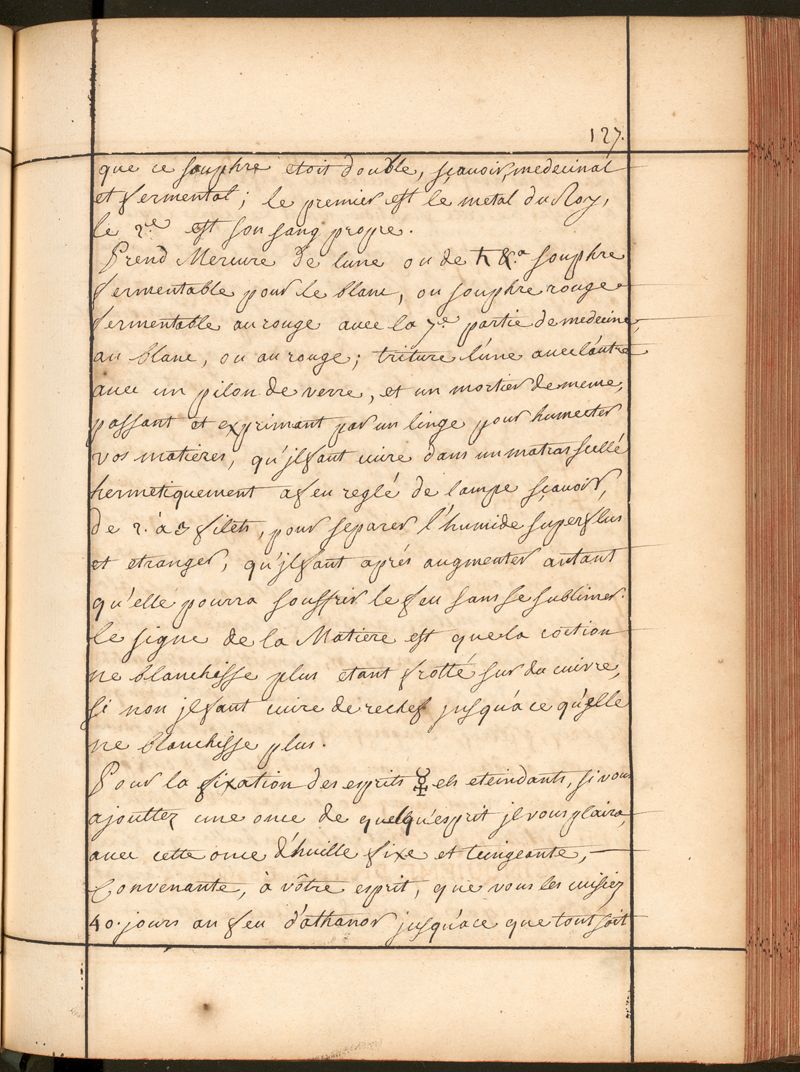 127.
que ce souphre etoit double, sçavoir, medecinal
et fermental; le premier est le metal du Roy,
le 2.e est son sang propre.
Prend Mercure de lune ou de ♄ souphre
fermentable pour le blanc, ou souphre rouge
fermentable au rouge avec la 7.e partie de medecine,
au blanc, ou au rouge; triture l'une avec l'autre
avec un pilon de verre, et un mortier de meme,
passant et exprimant par un linge pour humecter
vos matieres, qu'jl faut cuire dans un matras scellé
hermetiquement a feu reglé de lampe sçavoir,
de 2. à 3 filets, pour separer l'humide superflus
et etranger, qu'jl faut aprés augmenter autant
qu'elle pourra souffrir le feu sans se sublimer.
Le signe de la Matiere est que la coction
ne blanchisse plus etant frotté sur du cuivre,
si non jl faut cuire de rechef jusqu'a ce qu'elle
ne blanchisse plus.
Pour la fixation des esprits ☿ els eteindants, si vous
ajouttez une once de quelqu'esprit jl vous plaira,
avec cette once d'huille fixe et teingeante, —
Convenante, à vôtre esprit, que vous les cuisiez
40. jours au feu d'athanor jusqu'a ce que tout soit